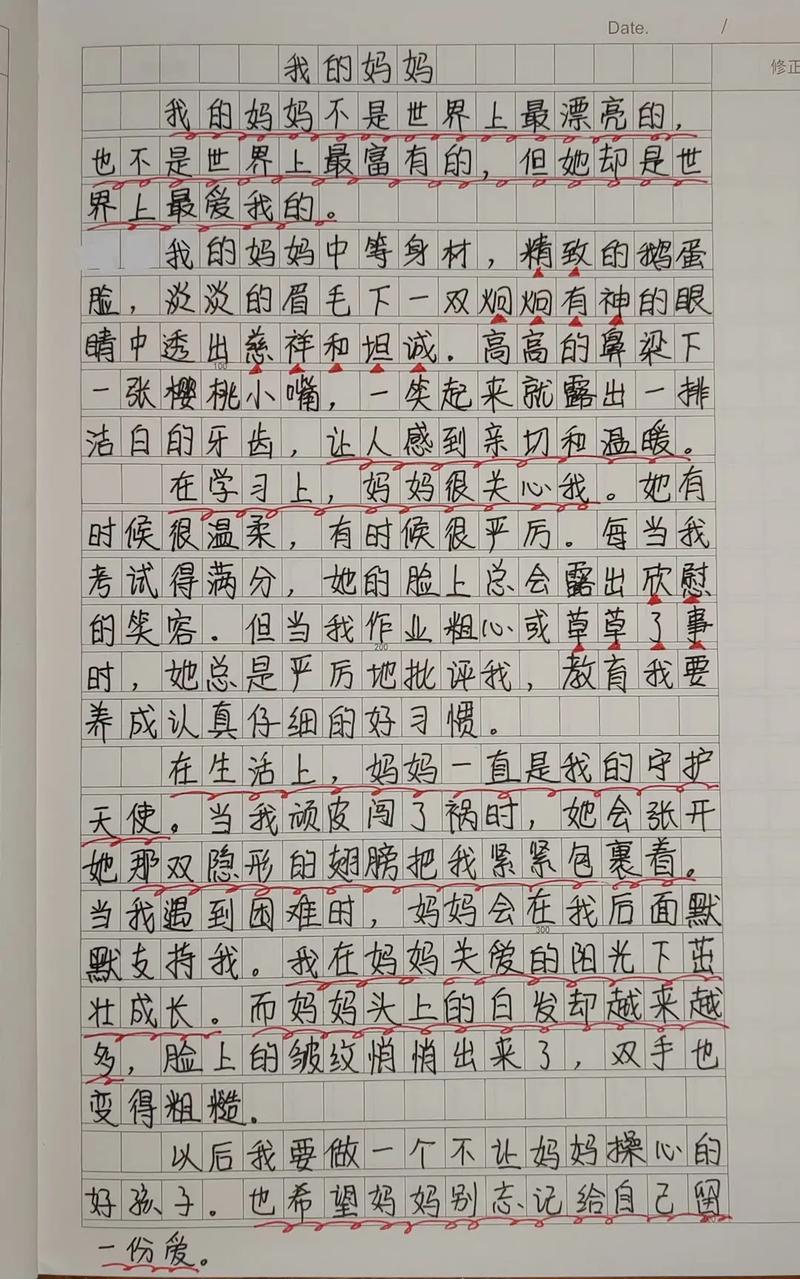 Date. /
修正
我的妈妈
我的妈妈不是世界上最漂亮的，
也不是世界上最富有的，但她却是世
界上最爱我的。
我的妈妈中等身材，精致的鹅蛋
脸，淡淡的眉毛下一双炯炯有神的眼
睛中透出慈祥和坦诚．高高的鼻梁下
100
一张樱桃小嘴，一笑起来就露出一排
洁白的牙齿，让人感到亲切和温暖。
在学习上，妈妈很关心我。她有
时候很温柔，有时候很严厉。每当我
考试得满分，她的脸上总会露出欣慰
的笑容．但当我作业粗心或草草了事
200
时，她总是严厉地批评我，教育我要
养成认真仔细的好习惯。
在生活上，妈妈一直是我的守护
天使。当我顽皮闯了祸时，她会张开
她那双隐形的翅膀把我紧紧包裹着。
当我遇到困难时，妈妈会在我后面默
300
默支持我。我在妈妈关爱的阳光下茁
壮成长。而妈妈头上的白发却越来越
多，脸上的皱纹悄悄出来了，双手也
变得粗糙．
以后我要做一个不让妈妈操心的
好孩子。也希望妈妈别忘记给自己留
一份爱。